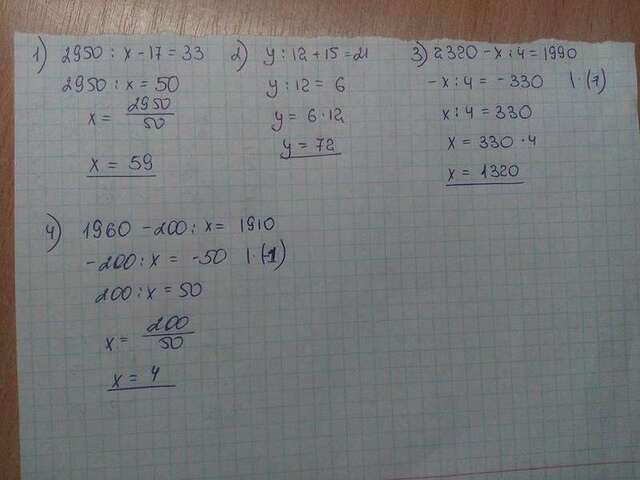 1) 2950 : x - 17 = 33
2950 : x = 50
x = 2950/50
x = 59
2) y : 12 + 15 = 21
y : 12 = 6
y = 6 · 12
y = 72
3) 2320 - x : 4 = 1990
- x : 4 = - 330 | · (-1)
x : 4 = 330
x = 330 · 4
x = 1320
4) 1960 - 200 : x = 1910
- 200 : x = - 50 | · (-1)
200 : x = 50
x = 200/50
x = 4